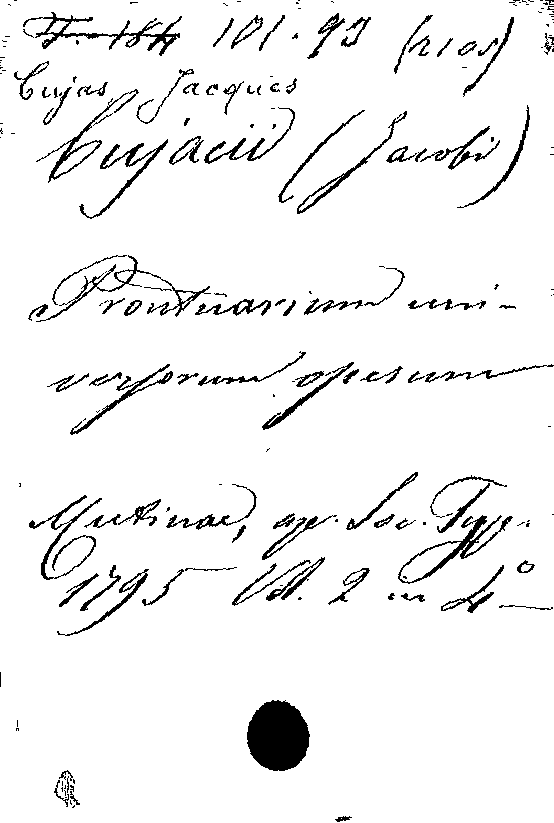 F. 184 101.93 (rios)
Cujas Jacques
Cujacii (Jacobi)
Prontuarium uni-
versorum operum
Mutinae, ap. Soc. Typ.
1795 Vol. 2 in 4º